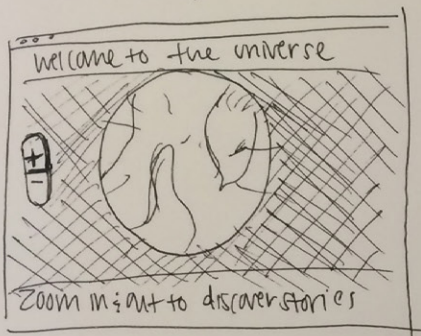 welcome to the universe
+
-
Zoom in & out to discover stories